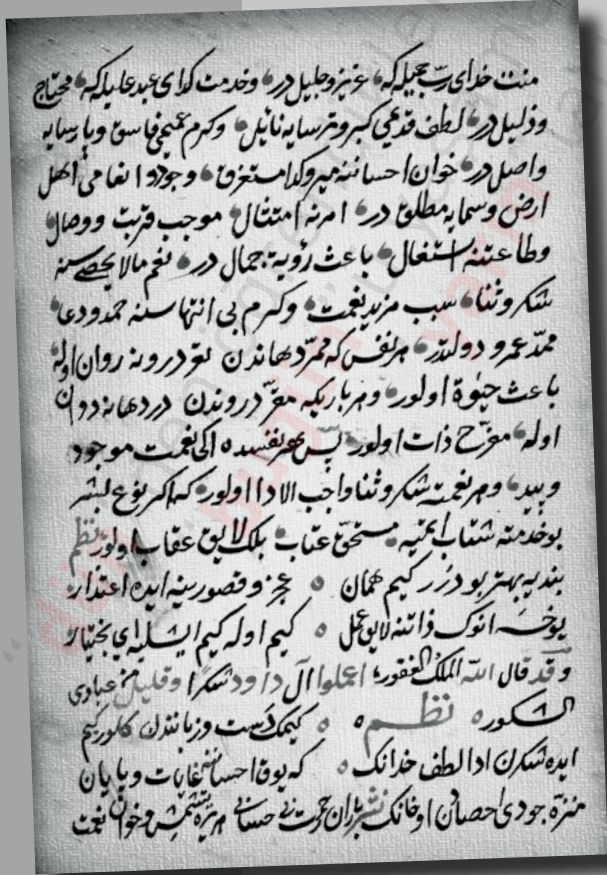 منت خدای رب جمیله که عزیز و جلیل در و خدمت کدای عبد علیله که محتاج
و ذلیل در لطف قدیمی کبر و ترسایه نائل و کرم عمیمی فاسق و پارسایه
واصل در خوان احساننه میر و کدا مستغرق و جود و انعامی اهل
ارض و سمایه مطلق در امرنه امتثال موجب قربت و وصال
و طاعتنه اشتغال باعث رؤیت جمال در نعم مالا یحصی سنه
شکر و ثنا سبب مزید نعمت و کرم بی انتها سنه حمد و دعا
ممد عمر و دولتدر هر نفس که ممر دهاندن تو درونه روان اوله
باعث حیوة اولور و هر بار که مقر دروندن در دهانه دوان
اوله مفرح ذات اولور پس هر نفسده ایکی نعمت موجود
و پدید و هر نعمته شکر و ثنا واجب الادا اولور که اکر نوع بشر
بو خدمته شتاب ایتمیه مستحق عتاب بلکه لایق عقاب اولور نظم
بنده یه بهتر بودرر کیم همان عجز و قصورینه ایده اعتذار
یوخسه انوک ذاتنه لایق عمل کیم اوله کیم ایشلیه ای بختیار
و قد قال الله الملک الغفور اعملوا آل داود شکرا و قلیل من عبادی
الشکور نظم کیمک دست و زبانندن کلور کیم
ایده شکرن ادا لطف خدانک که یوق احساننه غایات و پایان
منزه جودی احصادن اوخانک